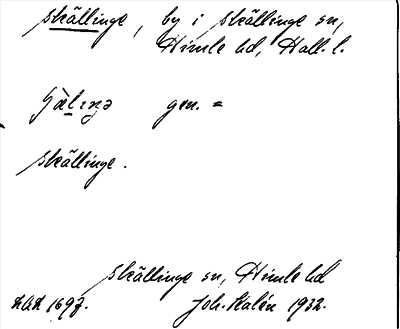 Skällinge, by i Skällinge sn,
Himle hd, Hall. l.
gen. =
Skällinge.
Skällinge sn, Himle hd
Joh. Kalén 1932.